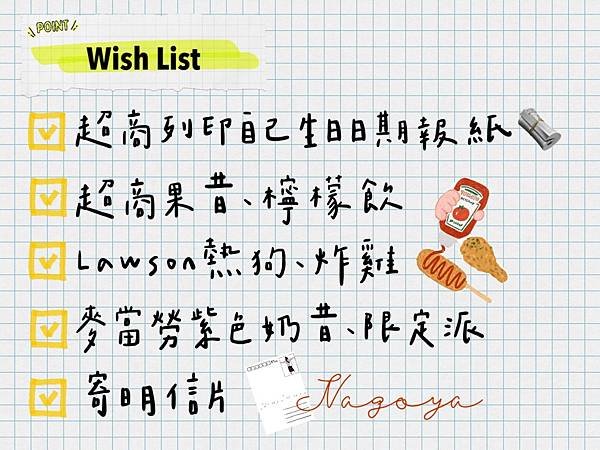 POINT
Wish List
超商列印自己生日日期報紙
超商果昔、檸檬飲
Lawson熱狗、炸雞
麥當勞紫色奶昔、限定派
寄明信片
Nagoya